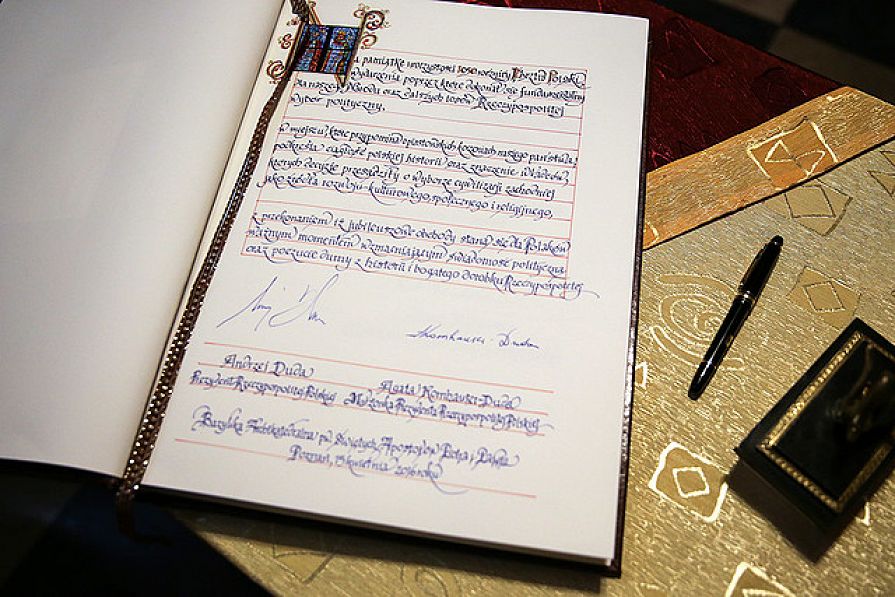 a pamiątkę uroczystości 1050 rocznicy Chrztu Polski
wydarzenia poprzez które dokonał się fundamentalny
dla naszego Narodu oraz dalszych losów Rzeczypospolitej
wybór polityczny,
w miejscu, które przypomina o piastowskich korzeniach naszego państwa,
podkreśla ciągłość polskiej historii oraz znaczenie władców,
których decyzje przesądziły o wyborze cywilizacji zachodniej
jako źródła rozwoju kulturowego, społecznego i religijnego,
z przekonaniem iż jubileuszowe obchody staną się dla Polaków
ważnym momentem wzmacniającym świadomość polityczną
oraz poczucie dumy z historii i bogatego dorobku Rzeczypospolitej
Kornhauser-Duda
Andrzej Duda
Prezydent Rzeczypospolitej Polskiej
Agata Kornhauser-Duda
Małżonka Prezydenta Rzeczypospolitej Polskiej
Bazylika Archikatedralna pw. Świętych Apostołów Piotra i Pawła
Poznań, 15 kwietnia 2016 roku